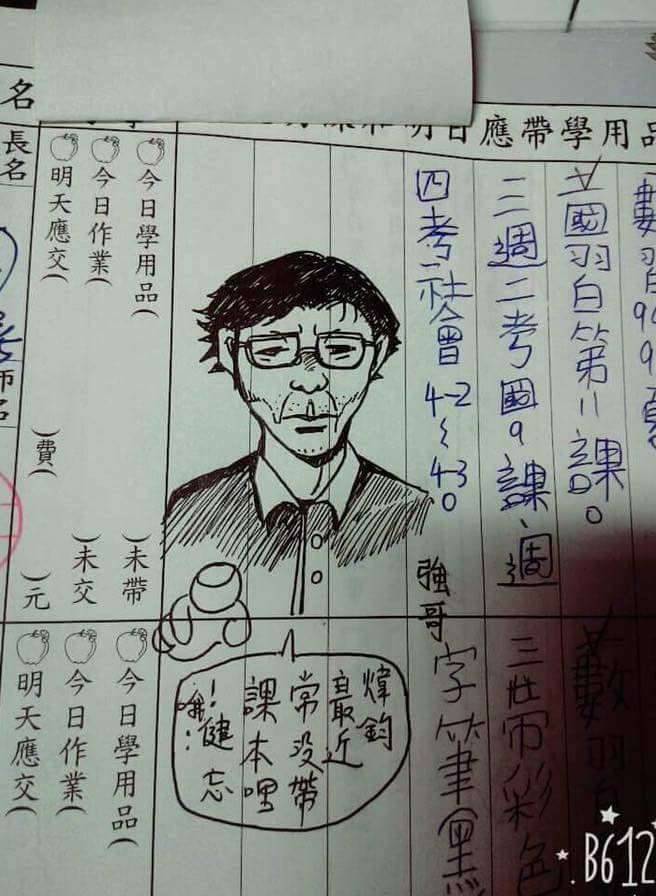 明日應帶學用品
國習第11課。
三週二考國9課、週
四考社會4-2~4-3。
強哥
今日學用品(　)未帶
今日作業(　)未交
明天應交(　)費(　)元
名
長名
師名
數習
彩色
字筆
煒鈞
最近
常没帶
課本哩
！健忘
哦！
今日學用品(
今日作業(
明天應交(
B612